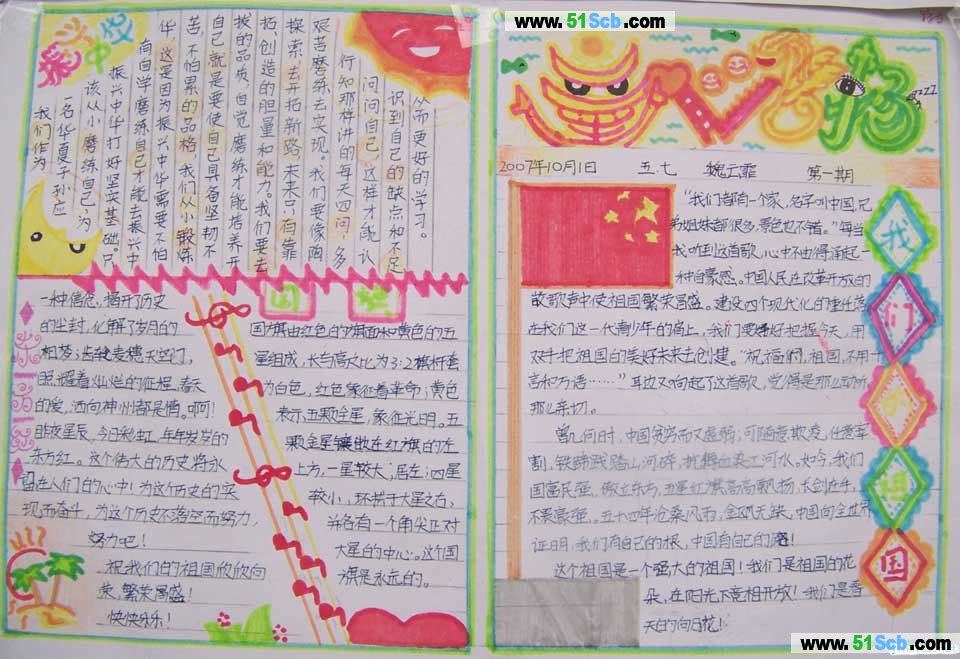 www.51Scb.com
www.51Scb.com
振兴中华
我们作为
名华夏子孙应
该从小磨练自己,为
振兴中华打好坚实基础。只
有自学磨练自己才能去振兴中
华,这是因为振兴中华需要不怕
苦,不怕累的品格,我们从小锻炼
自己就是要使自己具备坚韧不
拔的品质,自觉磨练才能培养开
拓,创造的胆量和能力。我们要去
探索,去开拓新路,未来只有靠
艰苦磨练去实现。我们要像陶
行知那样讲的每天四问,多
问问自己,这样才能认
识到自己的缺点和不足
从而更好的学习。
一种信念,揭开历史
的尘封,化解了岁月的
照耀着灿烂的征程,春天
的爱,洒向神州都是情。啊!
昨夜星辰,今日彩虹,年年发发的
东方红。这个伟大的历史将永
留在人们的心中!为这个历史的实
现而奋斗,为这个历史不落空而努力,
努力吧!
祝我们的祖国欣欣向
荣,繁荣富盛!
快快乐乐!
国旗
国旗由红色的旗面和黄色的五
星组成,长与高之比为3:2旗杆套
为白色,红色象征着革命;黄色
表示五颗金星,象征光明。五
颗金星镶嵌在红旗的左
上方,一星较大,居左;四星
较小,环拱于大星之右,
并各有一个角尖正对
大星的中心。这个国
旗是永远的。
2007年10月1日 五.七 魏云霏 第一期
我们的祖国
“我们都有一个家,名字叫中国,兄
弟姐妹都很多,景色也不错。”每当
我听到这首歌,心中不由得涌起一
种自豪感。中国人民在改革开放的
故歌声中使祖国繁荣富盛。建设四个现代化的重任落
在我们这一代青少年的肩上,我们要好好把握今天,用
双手把祖国的美好未来去创建。“祝福你们,祖国,不用千
言和万语……”耳边又响起了这首歌,觉得是那么动听
那么亲切。
曾几何时,中国贫穷而又虚弱;可随意欺凌,任意宰
割,铁蹄践踏山河碎,
国富民强,傲立东方,五星红旗高高飘扬,长剑在手,
不畏豪强。五十四年沧桑风雨,金瓯无缺,中国向全世界
证明,我们有自己的根,中国有自己的路!
这个祖国是一个强大的祖国!我们是祖国的花
朵,在阳光下竞相开放!我们是春
天的向日花!